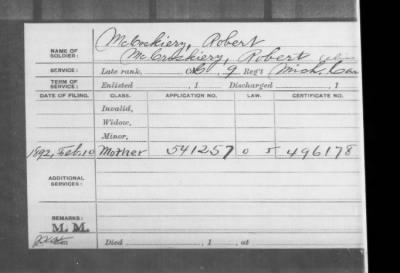 NAME OF SOLDIER: McCrskiery, Robert
McCroskiery, Robert
SERVICE: Late rank, Co. G, 9 Reg't Mich. Cav
TERM OF SERVICE: Enlisted , 1 Discharged , 1
DATE OF FILING. CLASS. APPLICATION NO. LAW. CERTIFICATE NO.
Invalid,
Widow,
Minor,
1892, Feb. 10 Mother 541257 496178
ADDITIONAL SERVICES:
REMARKS:
M. M.
Died , 1 , at